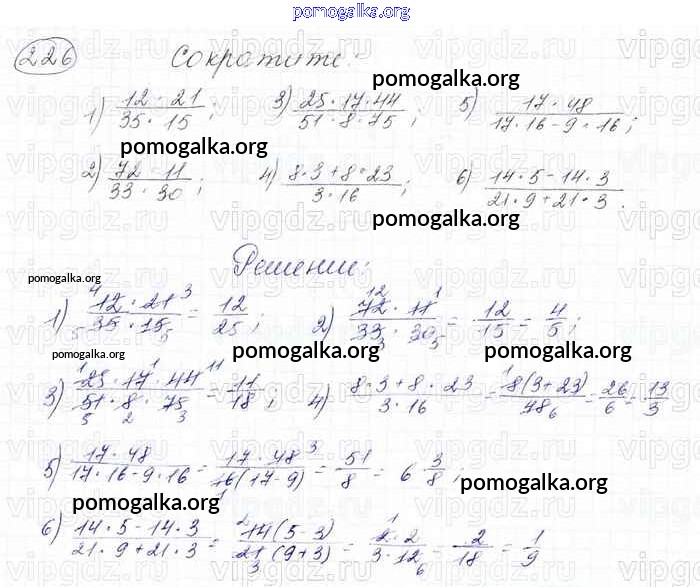 pomogalka.org
226 Сократите:
1) 12 · 21 / 35 · 15 ; 3) 25 · 17 · 44 / 51 · 8 · 75 ; 5) 17 · 48 / 17 · 16 - 9 · 16 ;
pomogalka.org
pomogalka.org
2) 72 · 11 / 33 · 30 ; 4) 8 · 3 + 8 · 23 / 3 · 16 ; 6) 14 · 5 - 14 · 3 / 21 · 9 + 21 · 3 .
pomogalka.org
Решение:
pomogalka.org
1) 12 · 21 / 35 · 15 = 12 / 25 ; 2) 72 · 11 / 33 · 30 = 12 / 15 = 4 / 5 ;
pomogalka.org pomogalka.org pomogalka.org
3) 25 · 17 · 44 / 51 · 8 · 75 = 11 / 18 ; 4) 8 · 3 + 8 · 23 / 3 · 16 = 8 (3 + 23) / 48 = 26 / 6 = 13 / 3
5) 17 · 48 / 17 · 16 - 9 · 16 = 17 · 48 / 16 (17 - 9) = 51 / 8 = 6 3/8 ;
pomogalka.org
pomogalka.org
6) 14 · 5 - 14 · 3 / 21 · 9 + 21 · 3 = 14 (5 - 3) / 21 (9 + 3) = 2 · 2 / 3 · 12 = 2 / 18 = 1 / 9